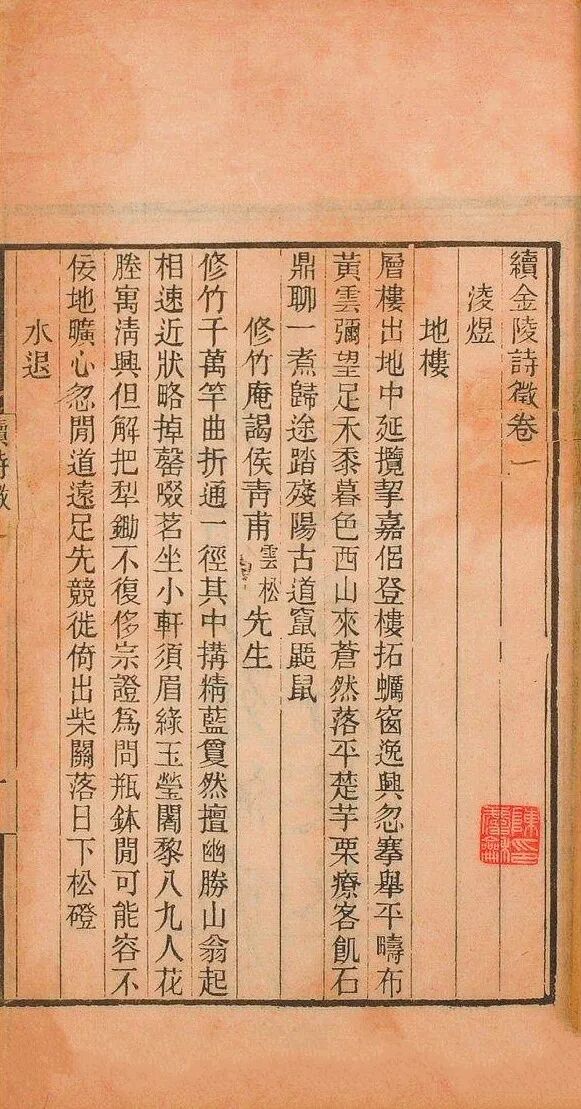 續金陵詩徵卷一
淩煜
地樓
層樓出地中延攬挈嘉侶登樓拓蠣窗逸興忽搴舉平疇布
黃雲彌望足禾黍暮色西山來蒼然落平楚芋栗療客飢石
鼎聊一煮歸途踏殘陽古道竄鼯鼠
修竹庵謁侯青甫雲松先生
修竹千萬竿曲折通一徑其中搆精藍敻然擅幽勝山翁起
相速近狀略掉罄啜茗坐小軒須眉綠玉瑩闍黎八九人花
塍寓淸興但解把犁鋤不復侈宗證爲問瓶鉢閒可能容不
佞地曠心忽閒道遠足先競徙倚出柴關落日下松磴
水退